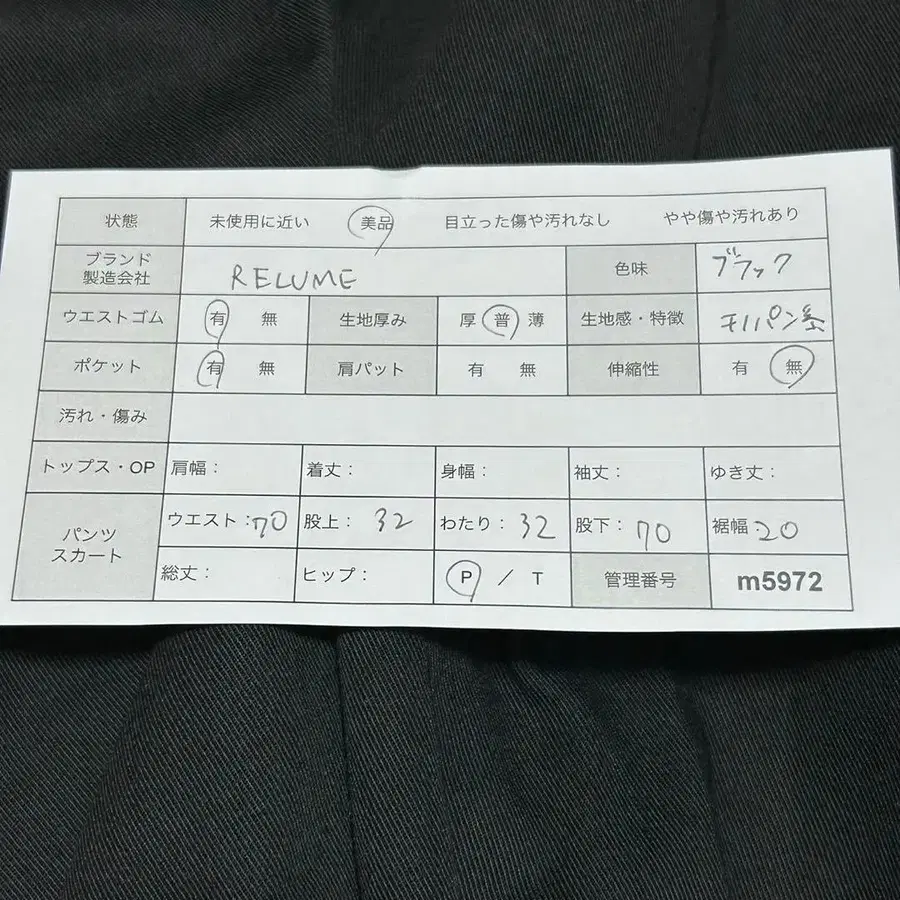 状態 未使用に近い 美品 目立った傷や汚れなし やや傷や汚れあり
ブランド
製造会社 RELUME 色味 ブラック
ウエストゴム 有 無 生地厚み 厚 普 薄 生地感・特徴 チノパン系
ポケット 有 無 肩パット 有 無 伸縮性 有 無
汚れ・傷み
トップス・OP 肩幅： 着丈： 身幅： 袖丈： ゆき丈：
パンツ
スカート ウエスト：70 股上： 32 わたり：32 股下：70 裾幅：20
総丈： ヒップ： P / T 管理番号 m5972